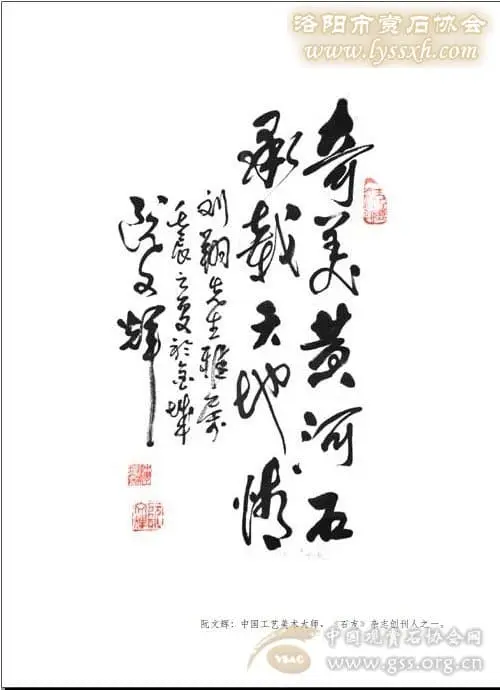 洛阳市赏石协会
www.lyssxh.com
奇美黄河石
承载天地情
刘翔先生雅属
壬辰之夏於金城
阮文辉
阮文辉：中国工艺美术大师。《石友》杂志创刊人之一。
中国观赏石协会网
VSAC
www.gss.org.cn